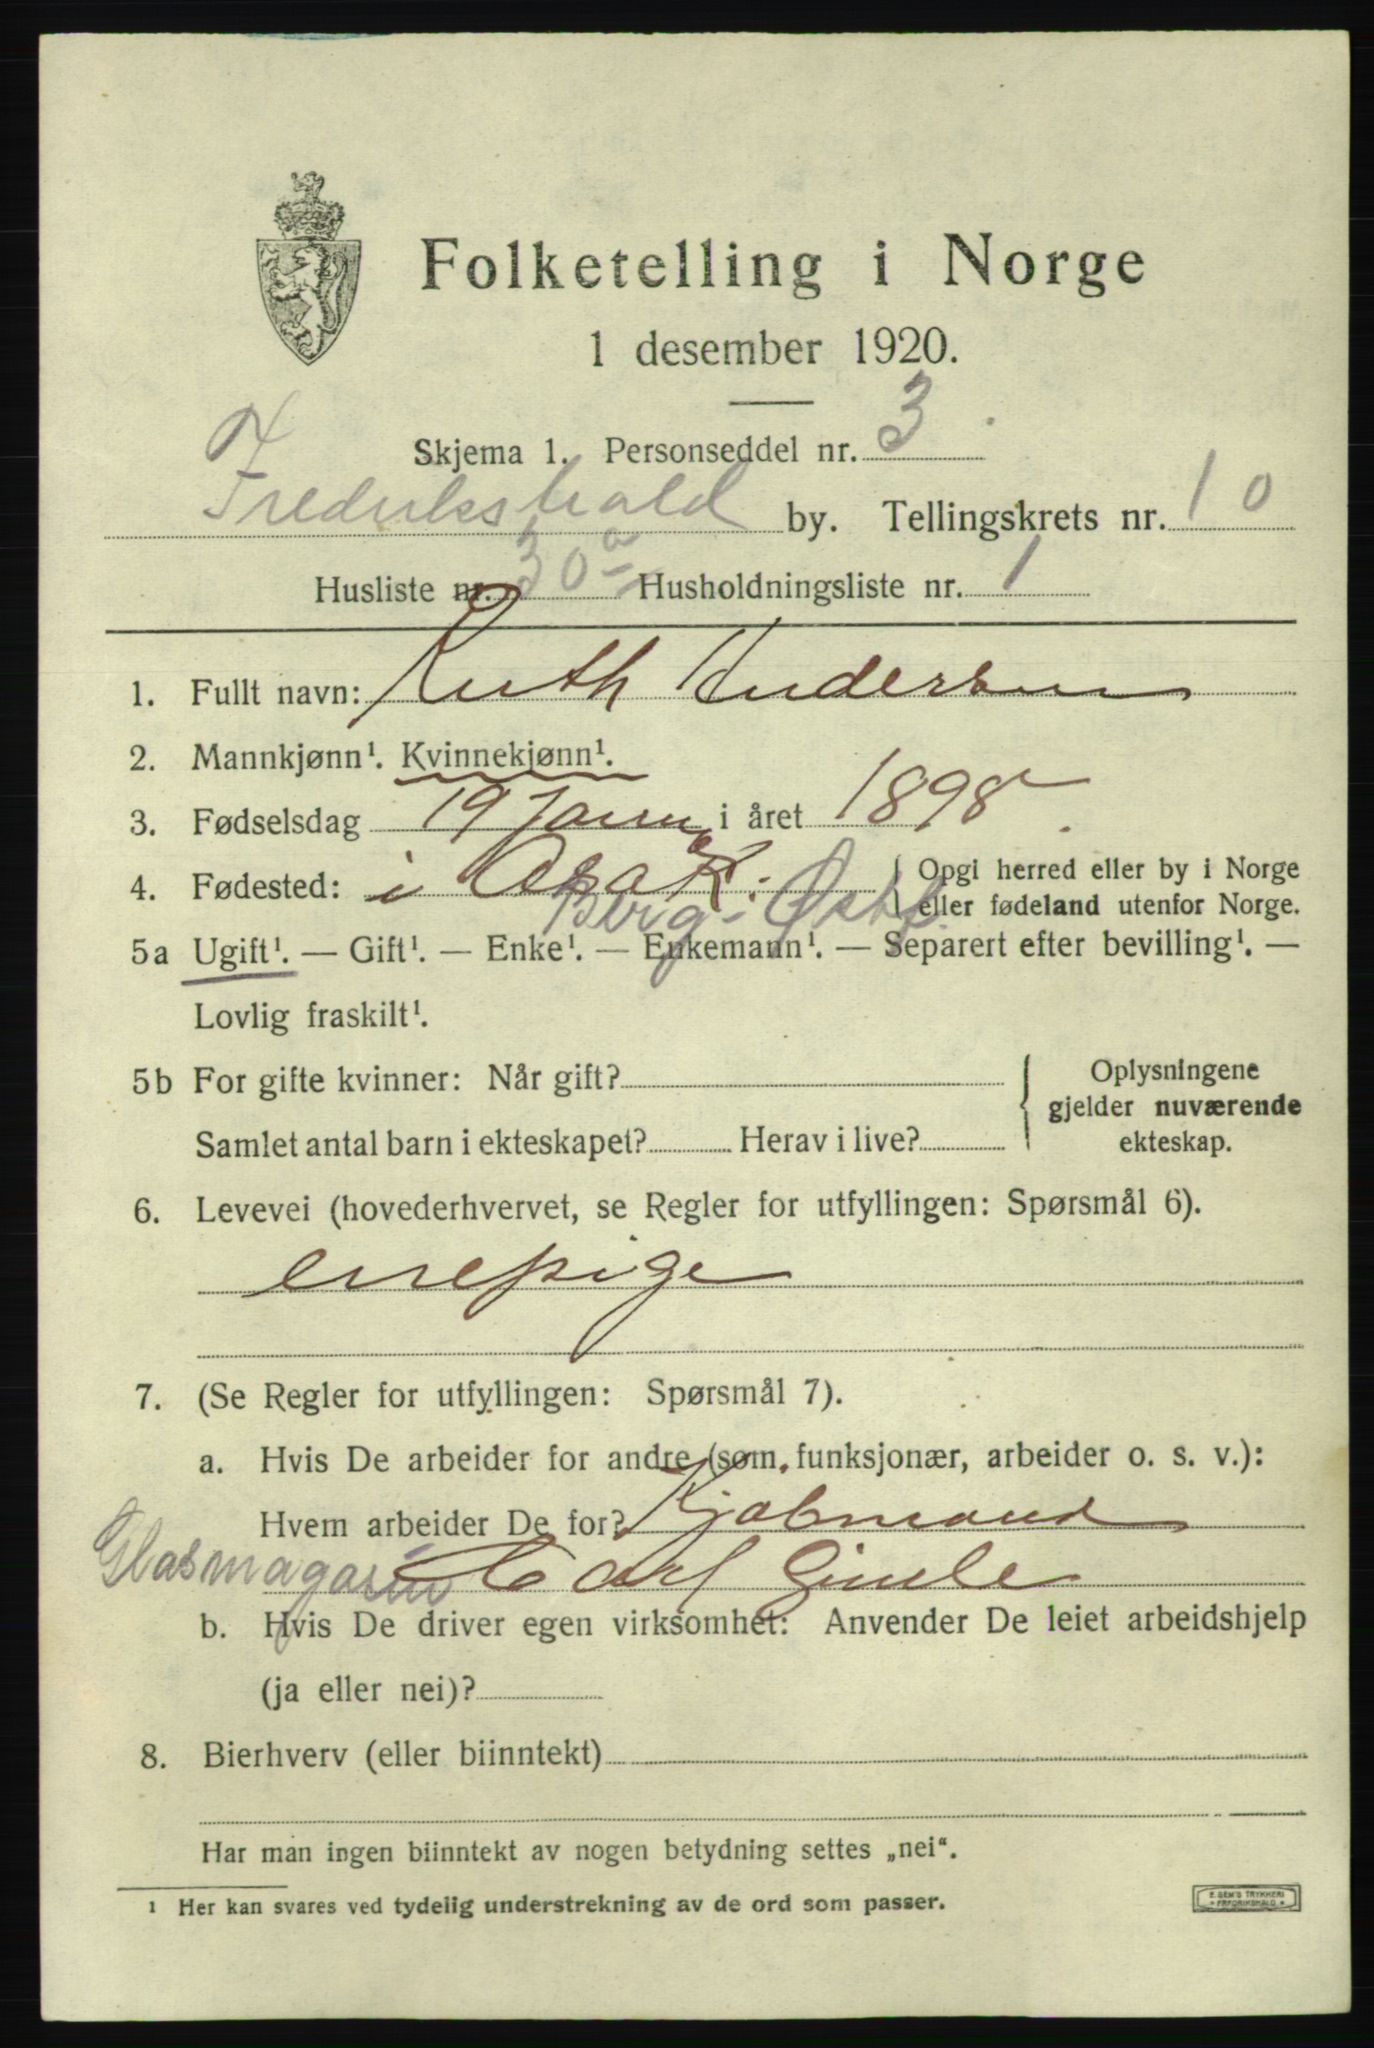 Folketelling i Norge
1 desember 1920.
Skjema 1. Personseddel nr. 3
Fredrikshald by. Tellingskrets nr. 10
Husliste nr. 30a Husholdningsliste nr. 1
1. Fullt navn: Ruth Andersen
2. Mannkjønn¹. Kvinnekjønn¹.
3. Fødselsdag 19 Janu i året 1898
4. Fødested: i Asak. { Opgi herred eller by i Norge
Berg - Østf. eller fødeland utenfor Norge.
5a Ugift¹. — Gift¹. — Enke¹. — Enkemann¹. — Separert efter bevilling¹. —
Lovlig fraskilt¹.
5b For gifte kvinner: Når gift? { Oplysningene
gjelder nuværende
Samlet antal barn i ekteskapet? Herav i live? ekteskap.
6. Levevei (hovederhvervet, se Regler for utfyllingen: Spørsmål 6).
enepige
7. (Se Regler for utfyllingen: Spørsmål 7).
a. Hvis De arbeider for andre (som funksjonær, arbeider o. s. v.):
Hvem arbeider De for? Kjøbmand
Glasmagasin Carl Gimle
b. Hvis De driver egen virksomhet: Anvender De leiet arbeidshjelp
(ja eller nei)?
8. Bierhverv (eller biinntekt)
Har man ingen biinntekt av nogen betydning settes „nei“.
¹ Her kan svares ved tydelig understrekning av de ord som passer.
E. SEM'S TRYKKERI
FREDRIKSHALD